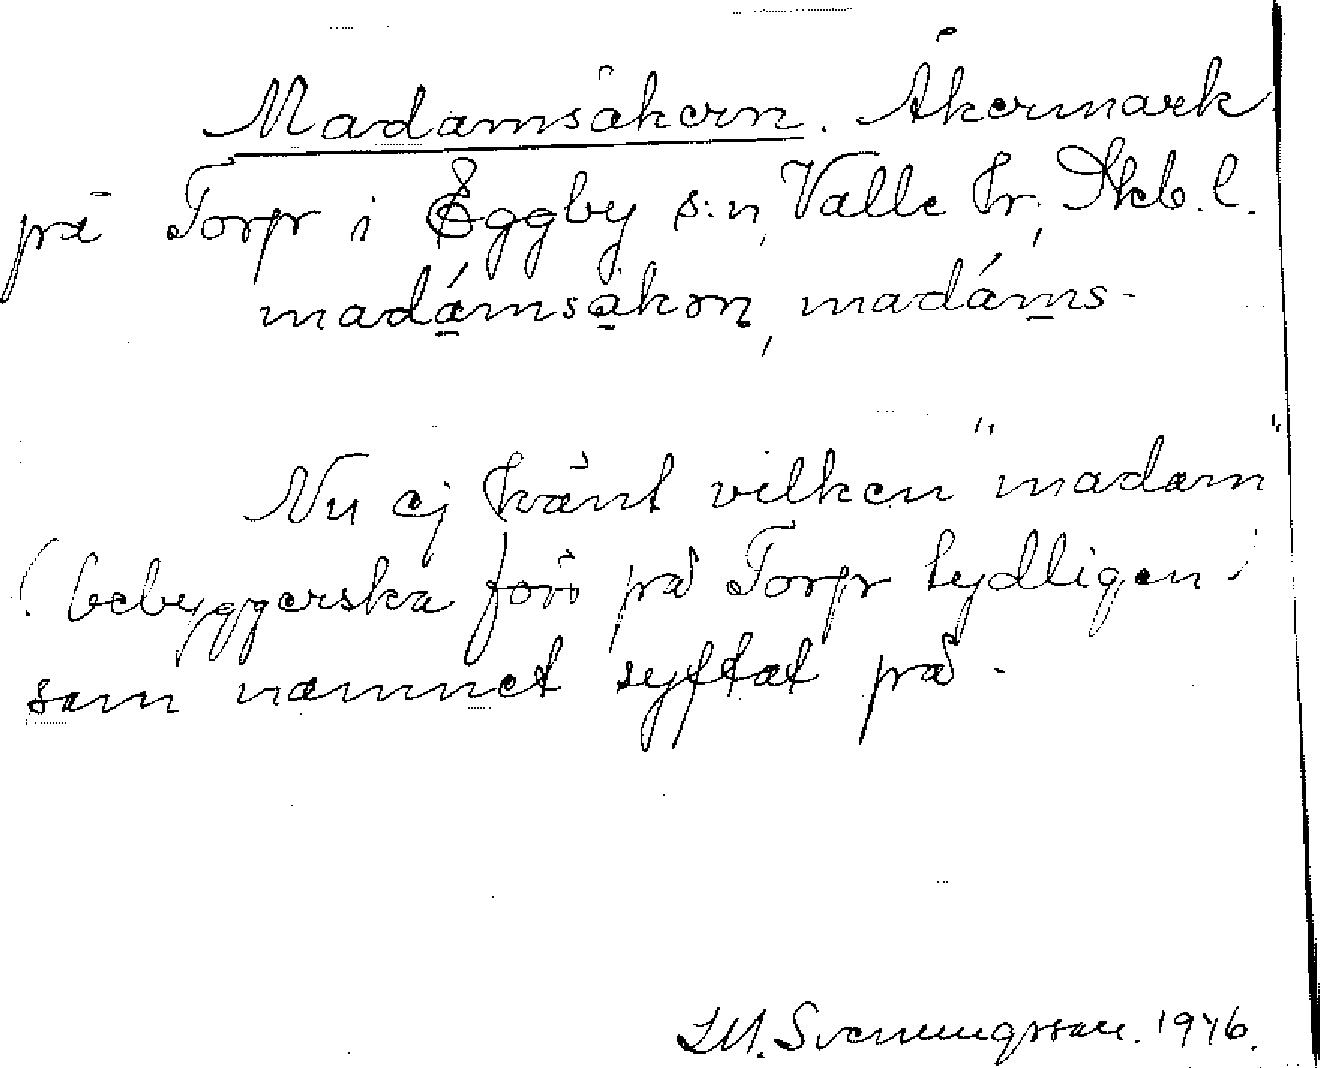 Madamsåkern. Åkermark
på Torp i Eggby s:n, Valle hr, Skb. l.
madámsåkɘn̥, madáms-
Nu ej känt vilken "madam"
(bebyggerska förr på Torp tydligen)
som namnet syftat på.
J.M. Svenungsson. 1946.